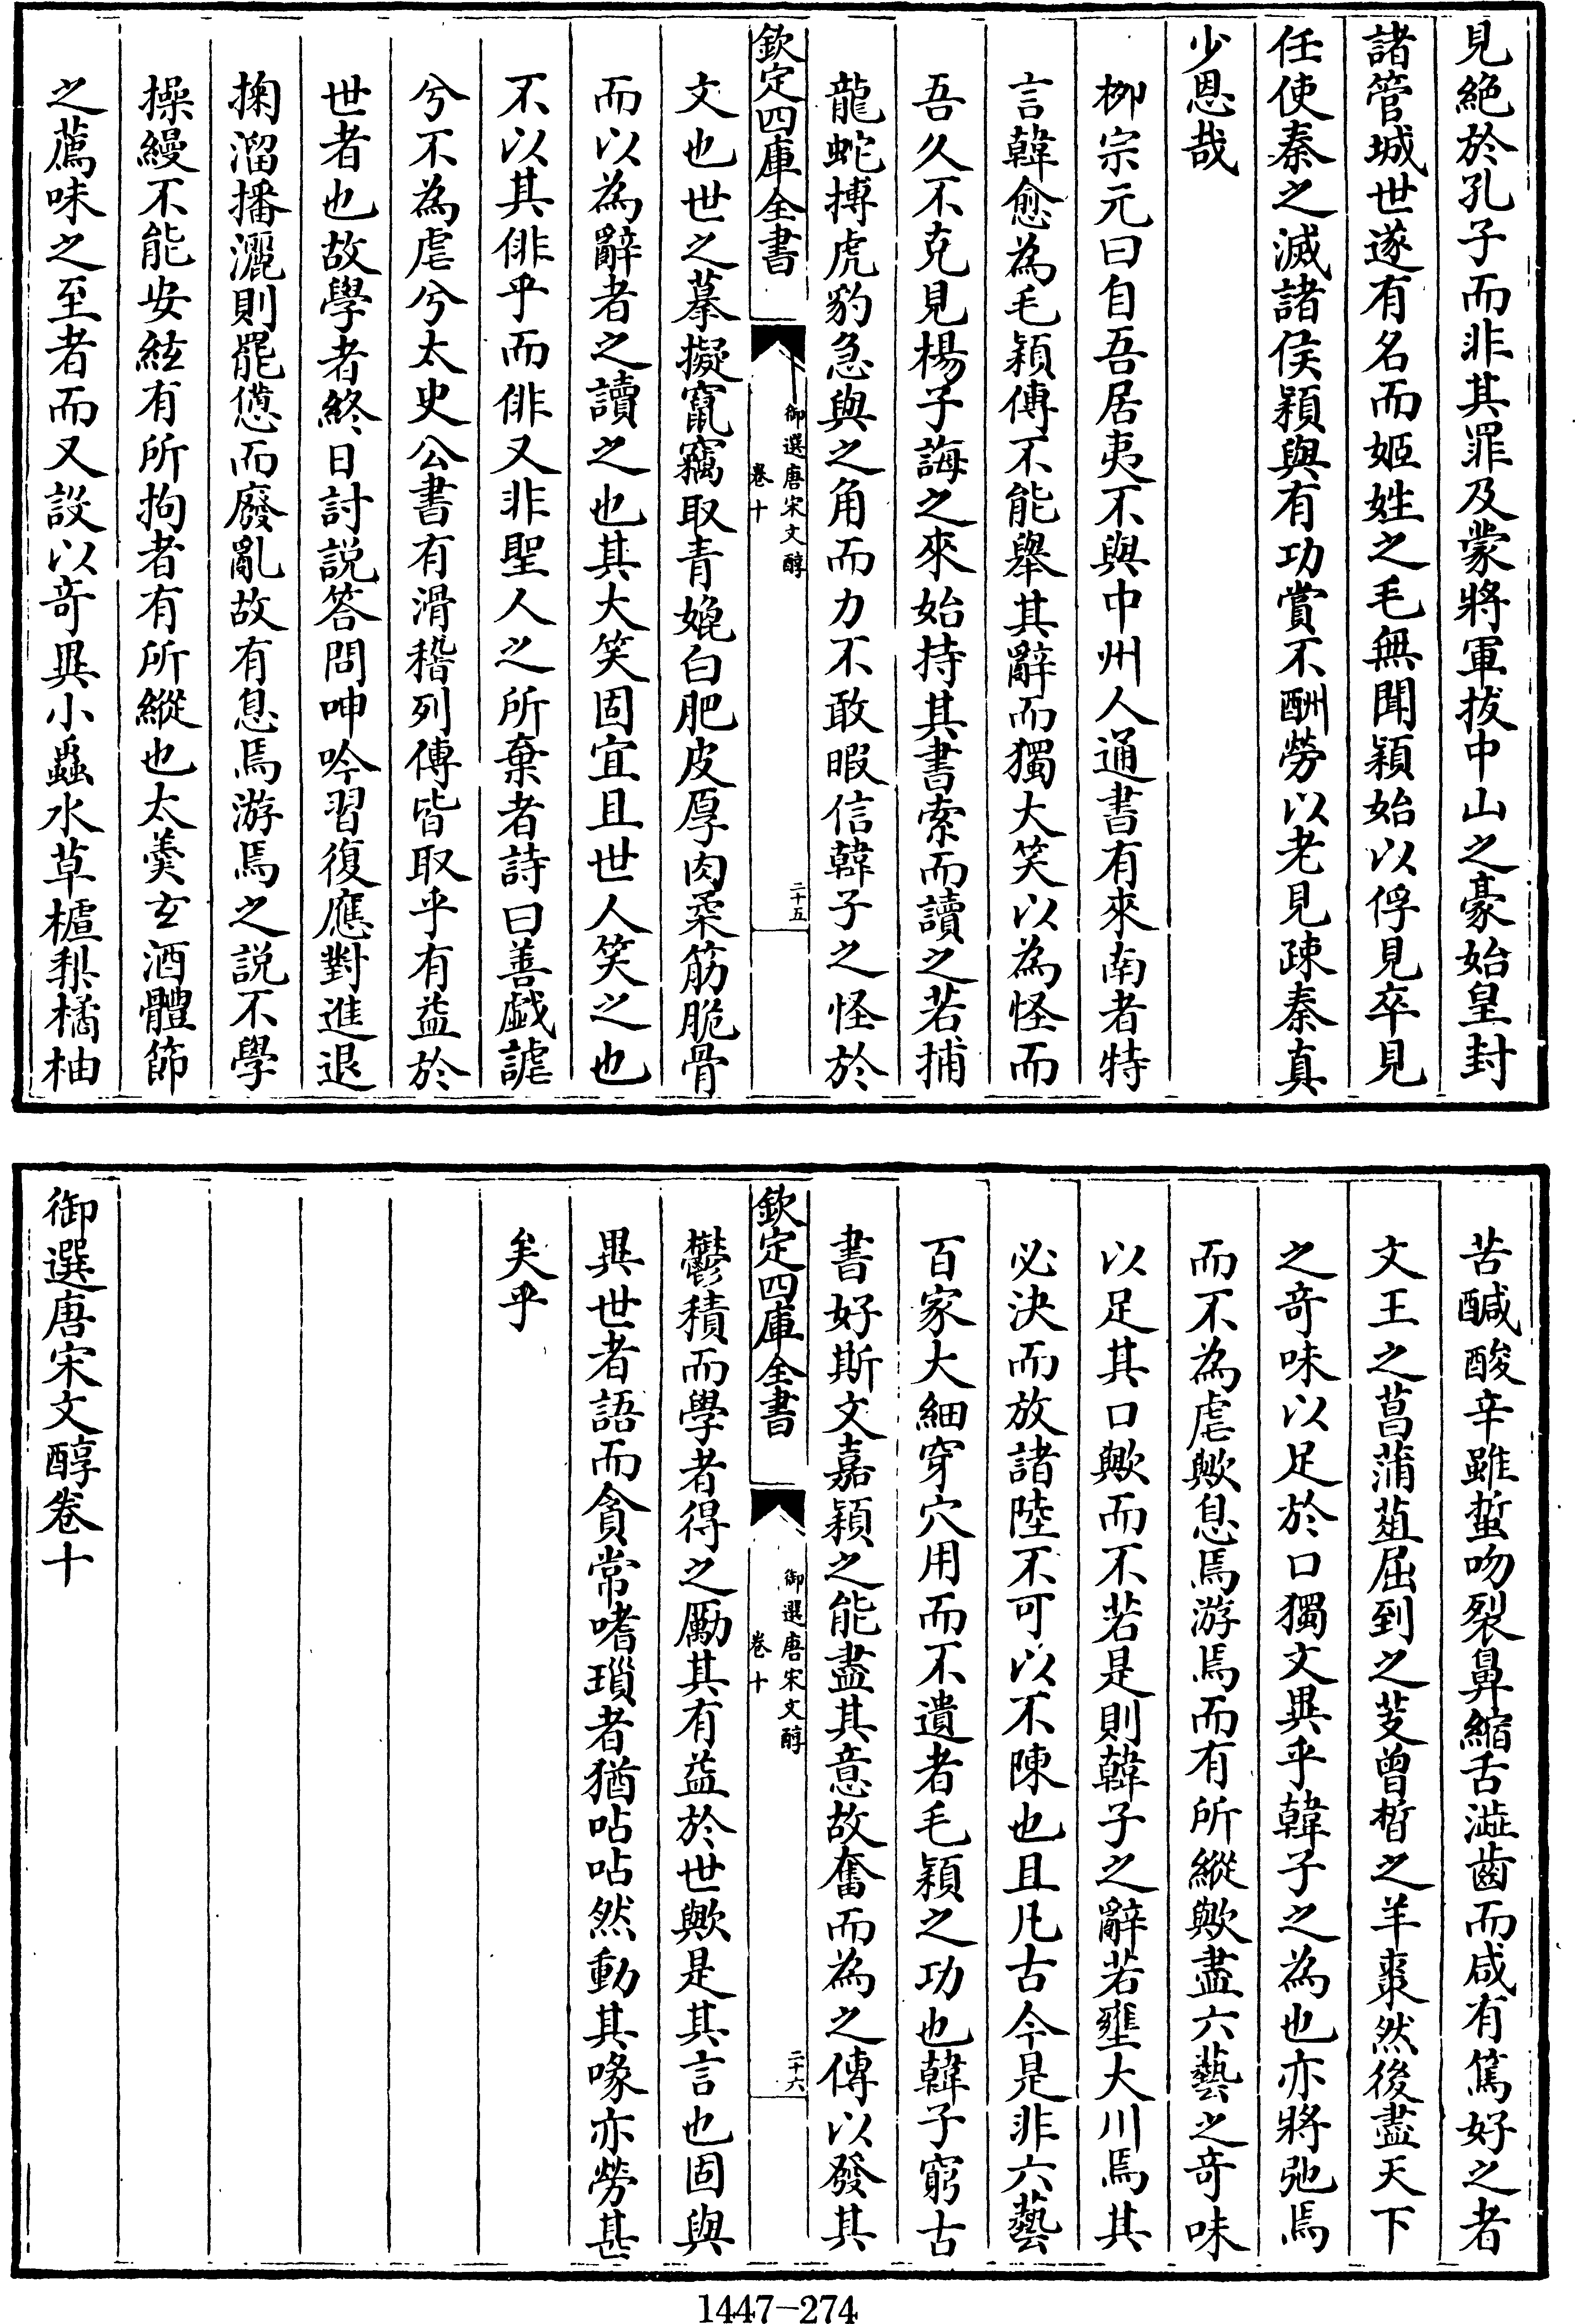 見絶於孔子而非其罪及蒙將軍拔中山之豪始皇封
諸管城世遂有名而姬姓之毛無聞穎始以俘見卒見
任使秦之滅諸侯穎與有功賞不酬勞以老見疎秦真
少恩哉
柳宗元曰自吾居夷不與中州人通書有來南者特
言韓愈為毛穎傳不能舉其辭而獨大笑以為怪而
吾久不克見楊子誨之來始持其書索而讀之若捕
龍蛇搏虎豹急與之角而力不敢暇信韓子之怪於
欽定四庫全書
御選唐宋文醇
卷十
二十五
文也世之摹擬竄竊取青媲白肥皮厚肉柔筋脆骨
而以為辭者之讀之也其大笑固宜且世人笑之也
不以其俳乎而俳又非聖人之所棄者詩曰善戲謔
兮不為虐兮太史公書有滑稽列傳皆取乎有益於
世者也故學者終日討説答問呻吟習復應對進退
掬溜播灑則罷憊而廢亂故有息焉游焉之説不學
操縵不能安絃有所拘者有所縱也太羮玄酒體節
之薦味之至者而又設以竒異小蟲水草樝棃橘柚
苦醎酸辛雖蜇吻裂鼻縮舌澁齒而咸有篤好之者
文王之菖蒲葅屈到之芰曾晳之羊棗然後盡天下
之竒味以足於口獨文異乎韓子之為也亦將弛焉
而不為虐歟息焉游焉而有所縱歟盡六藝之竒味
以足其口歟而不若是則韓子之辭若壅大川焉其
必決而放諸陸不可以不陳也且凡古今是非六藝
百家大細穿穴用而不遺者毛穎之功也韓子窮古
書好斯文嘉穎之能盡其意故奮而為之傳以發其
欽定四庫全書
御選唐宋文醇
卷十
二十六
鬱積而學者得之勵其有益於世歟是其言也固與
異世者語而貪常嗜瑣者猶呫呫然動其喙亦勞甚
矣乎
御選唐宋文醇卷十
1447-274